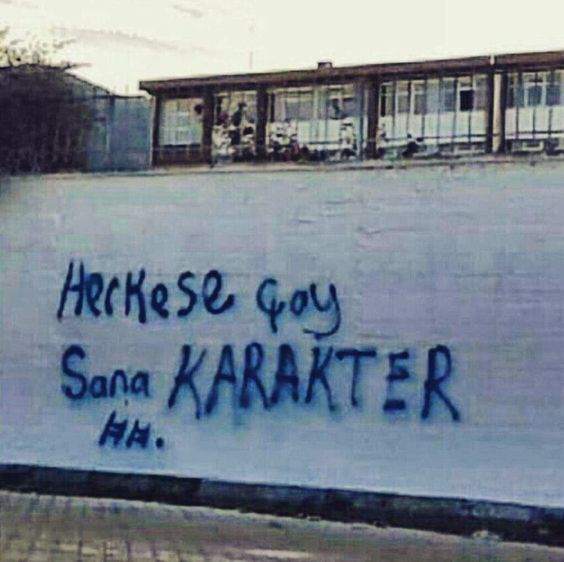 Herkese çay
Sana KARAKTER
HH.